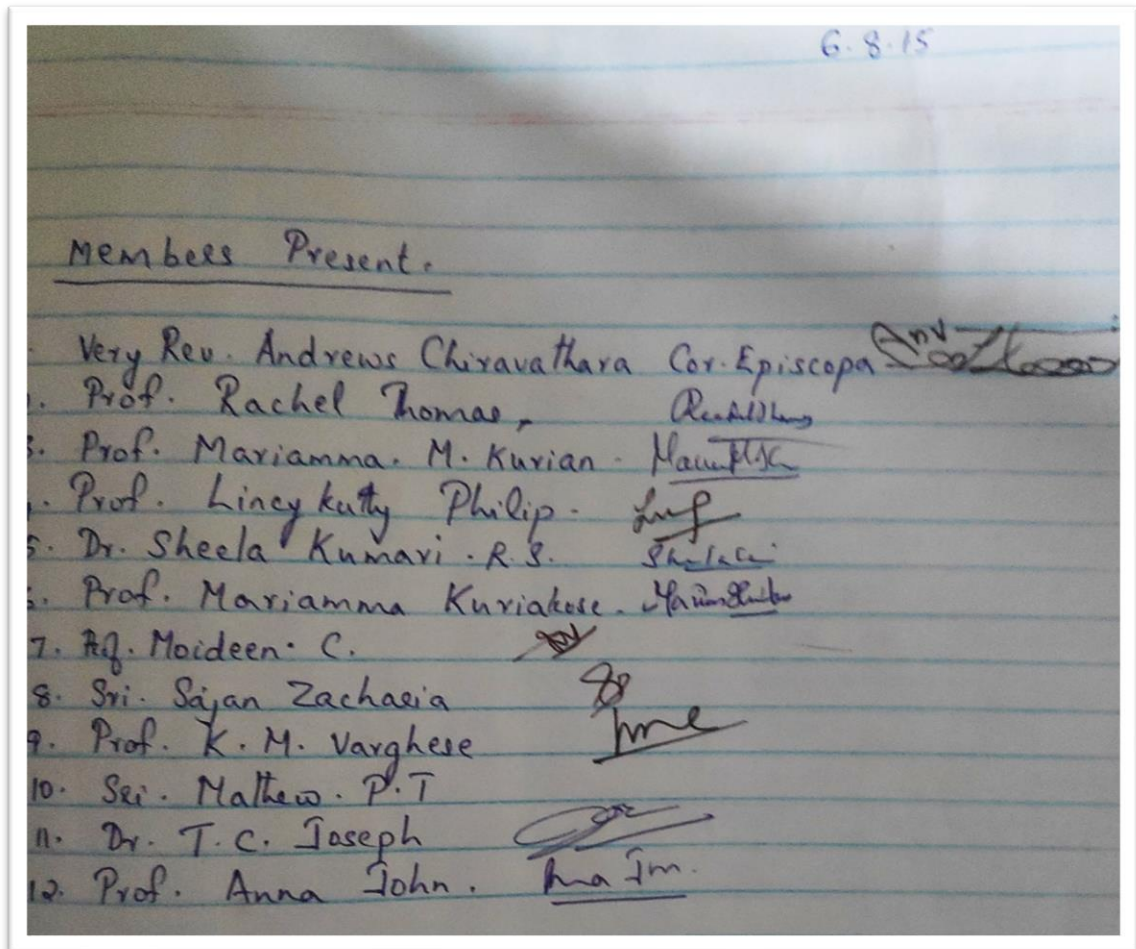 6.8.15
Members Present.
Very Rev. Andrews Chiravathara Cor. Episcopa
Prof. Rachel Thomas,
3. Prof. Mariamma. M. Kurian.
Prof. Lincy kutty Philip.
5. Dr. Sheela Kumari. R.S.
Prof. Mariamma Kuriakose.
7. Moideen. C.
8. Sri. Sajan Zacharia
9. Prof. K.M. Varghese
10. Sri. Mathew. P.T
11. Dr. T.C. Joseph
12. Prof. Anna John.